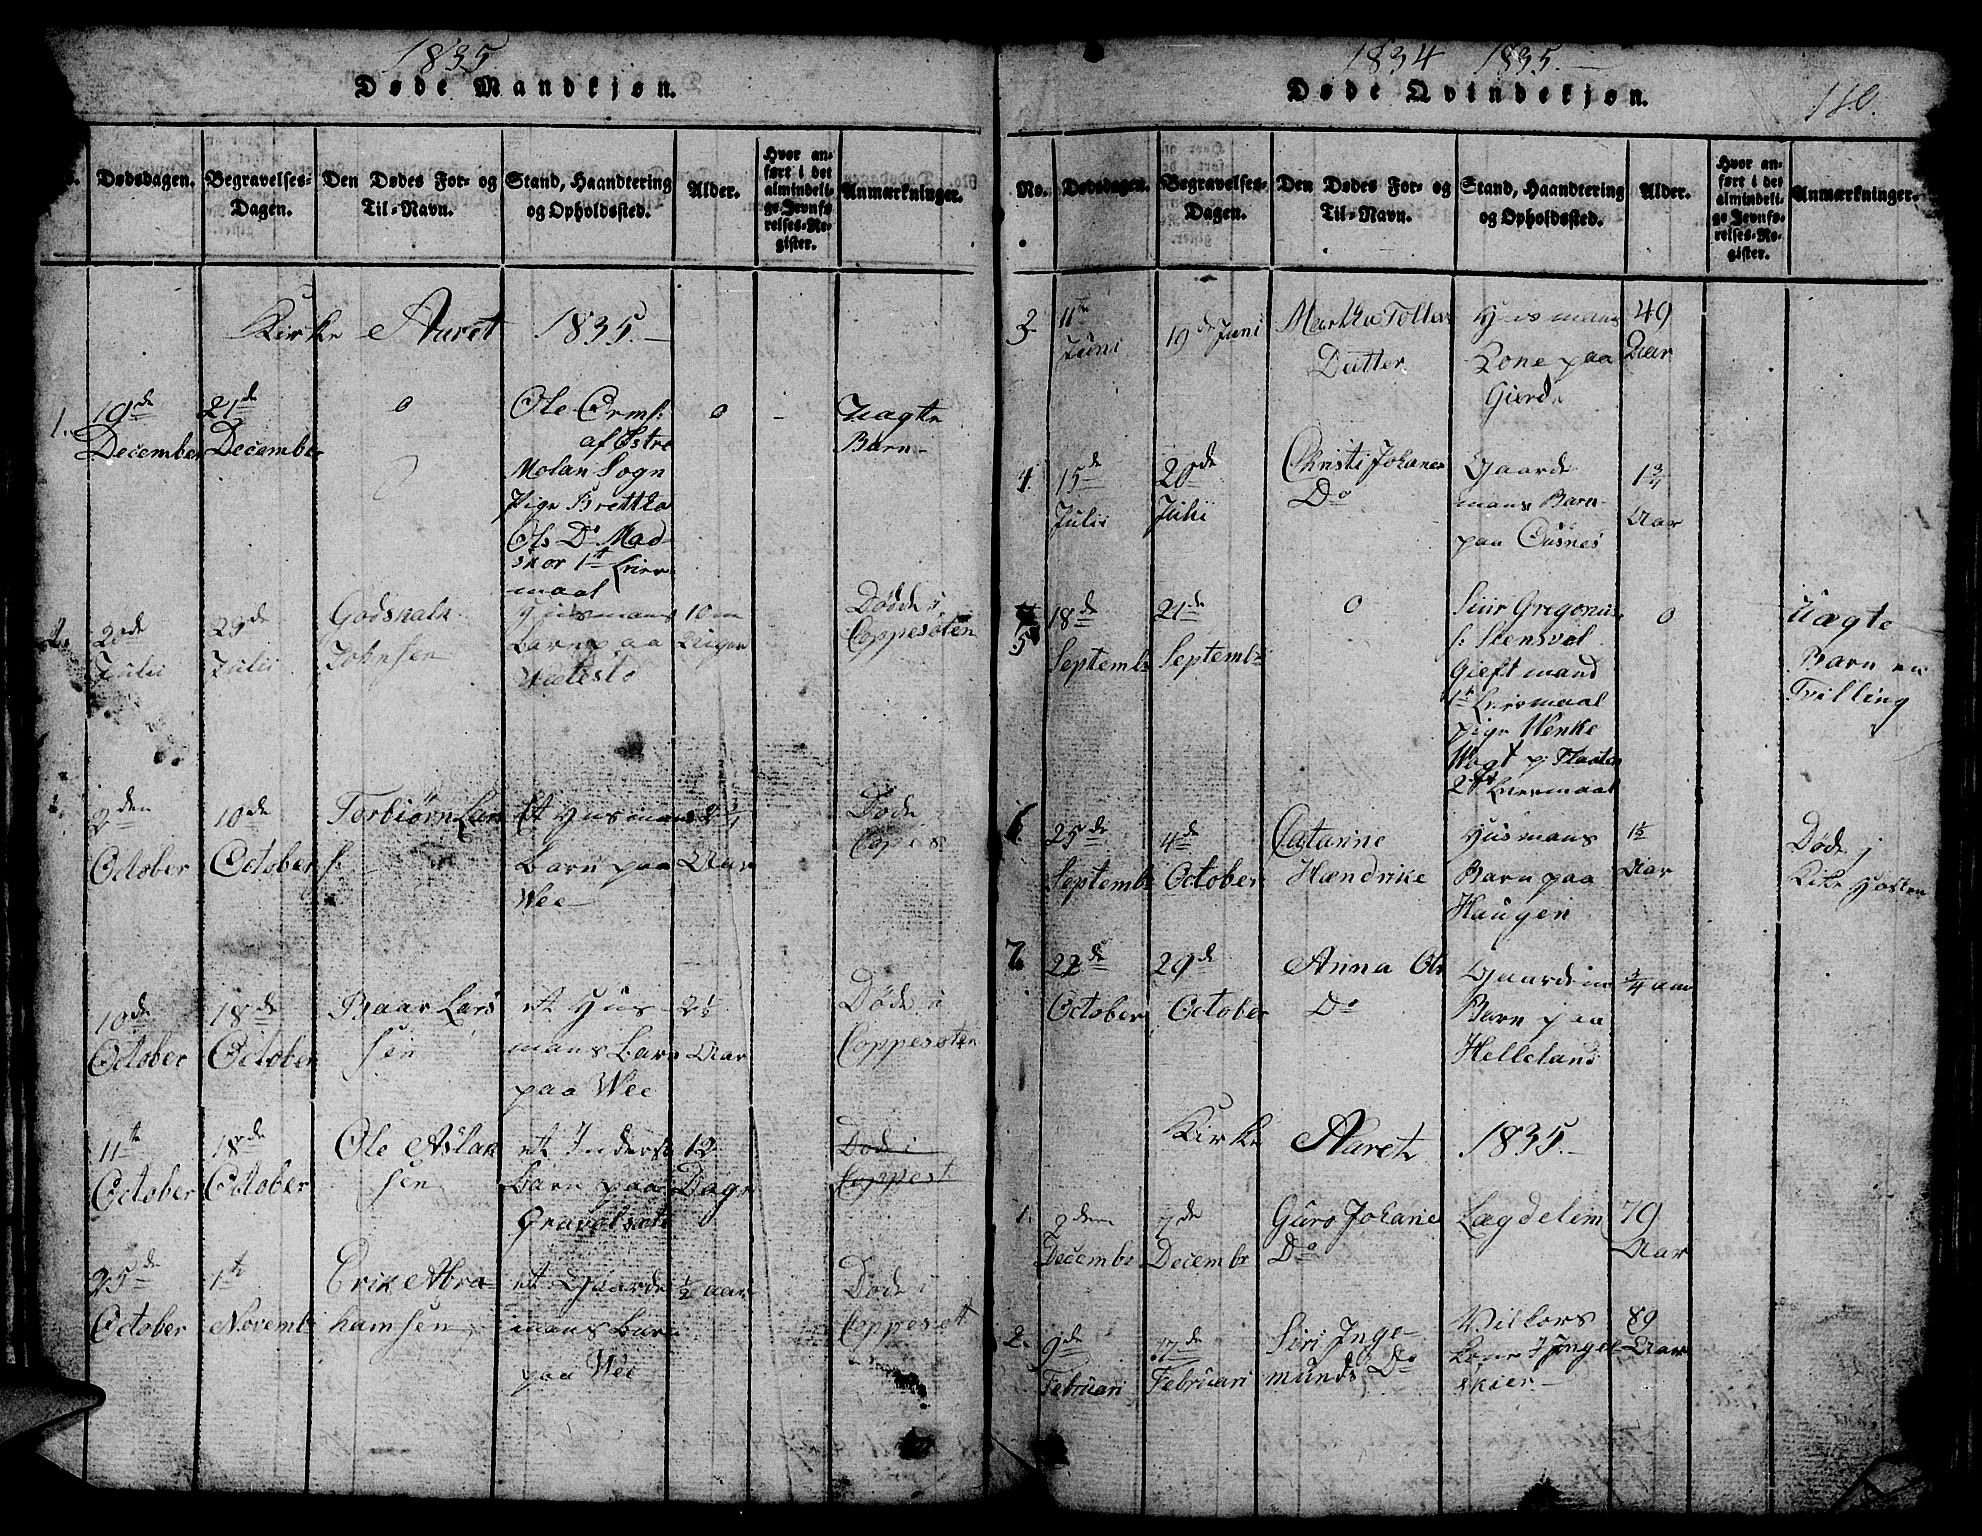 1835
Døde Mandkjøn.
Dødsdagen.
Begravelses-
Dagen.
Den Dødes For- og
Til-Navn.
Stand, Haandtering
og Opholdssted.
Alder.
Hvor an-
ført i det
almindeli-
ge Jevnfø-
relses-Re-
gister.
Anmærkninger.
Kirke Aaret 1835.-
1.
19de
December
21de
December
0
Ole Ormf:
af Østre
Molan Sogn
Pige Brettha
Ols Do Mad-
skor 1te Leier-
maal
0
Uægte
Barn-
20de
Julii
23de
Julii
Godskalk
Johnsen
Huusmans
Barn paa
10
Uger
Døde i
Coppesoten
2den
October
10de
October
Torbiørn Lars
f:
et Husmans
Barn paa
Wee
Aar
Døde
10de
October
18de
October
Baar Lars
sen
et Hus-
mans Barn
paa Wee
2½
Aar
Døde i
Coppesoten
11te
October
18de
October
Ole Aslak
sen
et Inderst
Barn paa
12
Dage
Døde i
Coppest
25de
October
1te
Novembr
Erik Abra
hamsen
et Gaarde
mans Barn
paa Wee
½ aar
Døde i
Coppesot
1834 1835.-
Døde Qvindekjøn.
180.
No.
Dødsdagen.
Begravelses-
Dagen.
Den Dødes For- og
Til-Navn.
Stand, Haandtering
og Opholdssted.
Alder.
Hvor an-
ført i det
almindeli-
ge Jevnfø-
relses-Re-
gister.
Anmærkninger.
3
11te
Juni
19de Juni
Martha Tollevs
Datter
Husmans
Kone paa
Gierde
49
Aar
4
15de
Julii
20de
Julii
Christi Johanes
Do
Gaarde
mans Barn
paa Ousnes
1¾
Aar
5
18de
Septembr
21de
Septembr
0
Siur Gregorius
f: Stensvol
Gieft mand
1te Leiermaal
pige Wenke
Vogt p: Flaaten
2det Leiermaal
0
Uægte
Barn en
Tvilling
6
25de
Septembr
4de
October
Catarine
Hændrike
Husmans
Barn paa
Haugen
1½
Aar
Døde i
Kikhosten
7
22de
October
29de
October
Anna Ols
Do
Gaardm
Barn paa
Helleland
¾ aar
Kirke Aaret 1835.-
1.
2den
Decembr
7de
Decembr
Guro Johanes
Do
Lægdelem
79
Aar
2.
9de
Februari
17de
Februari
Siri Inge-
munds Do
Vilkors
Kone
89
Aar